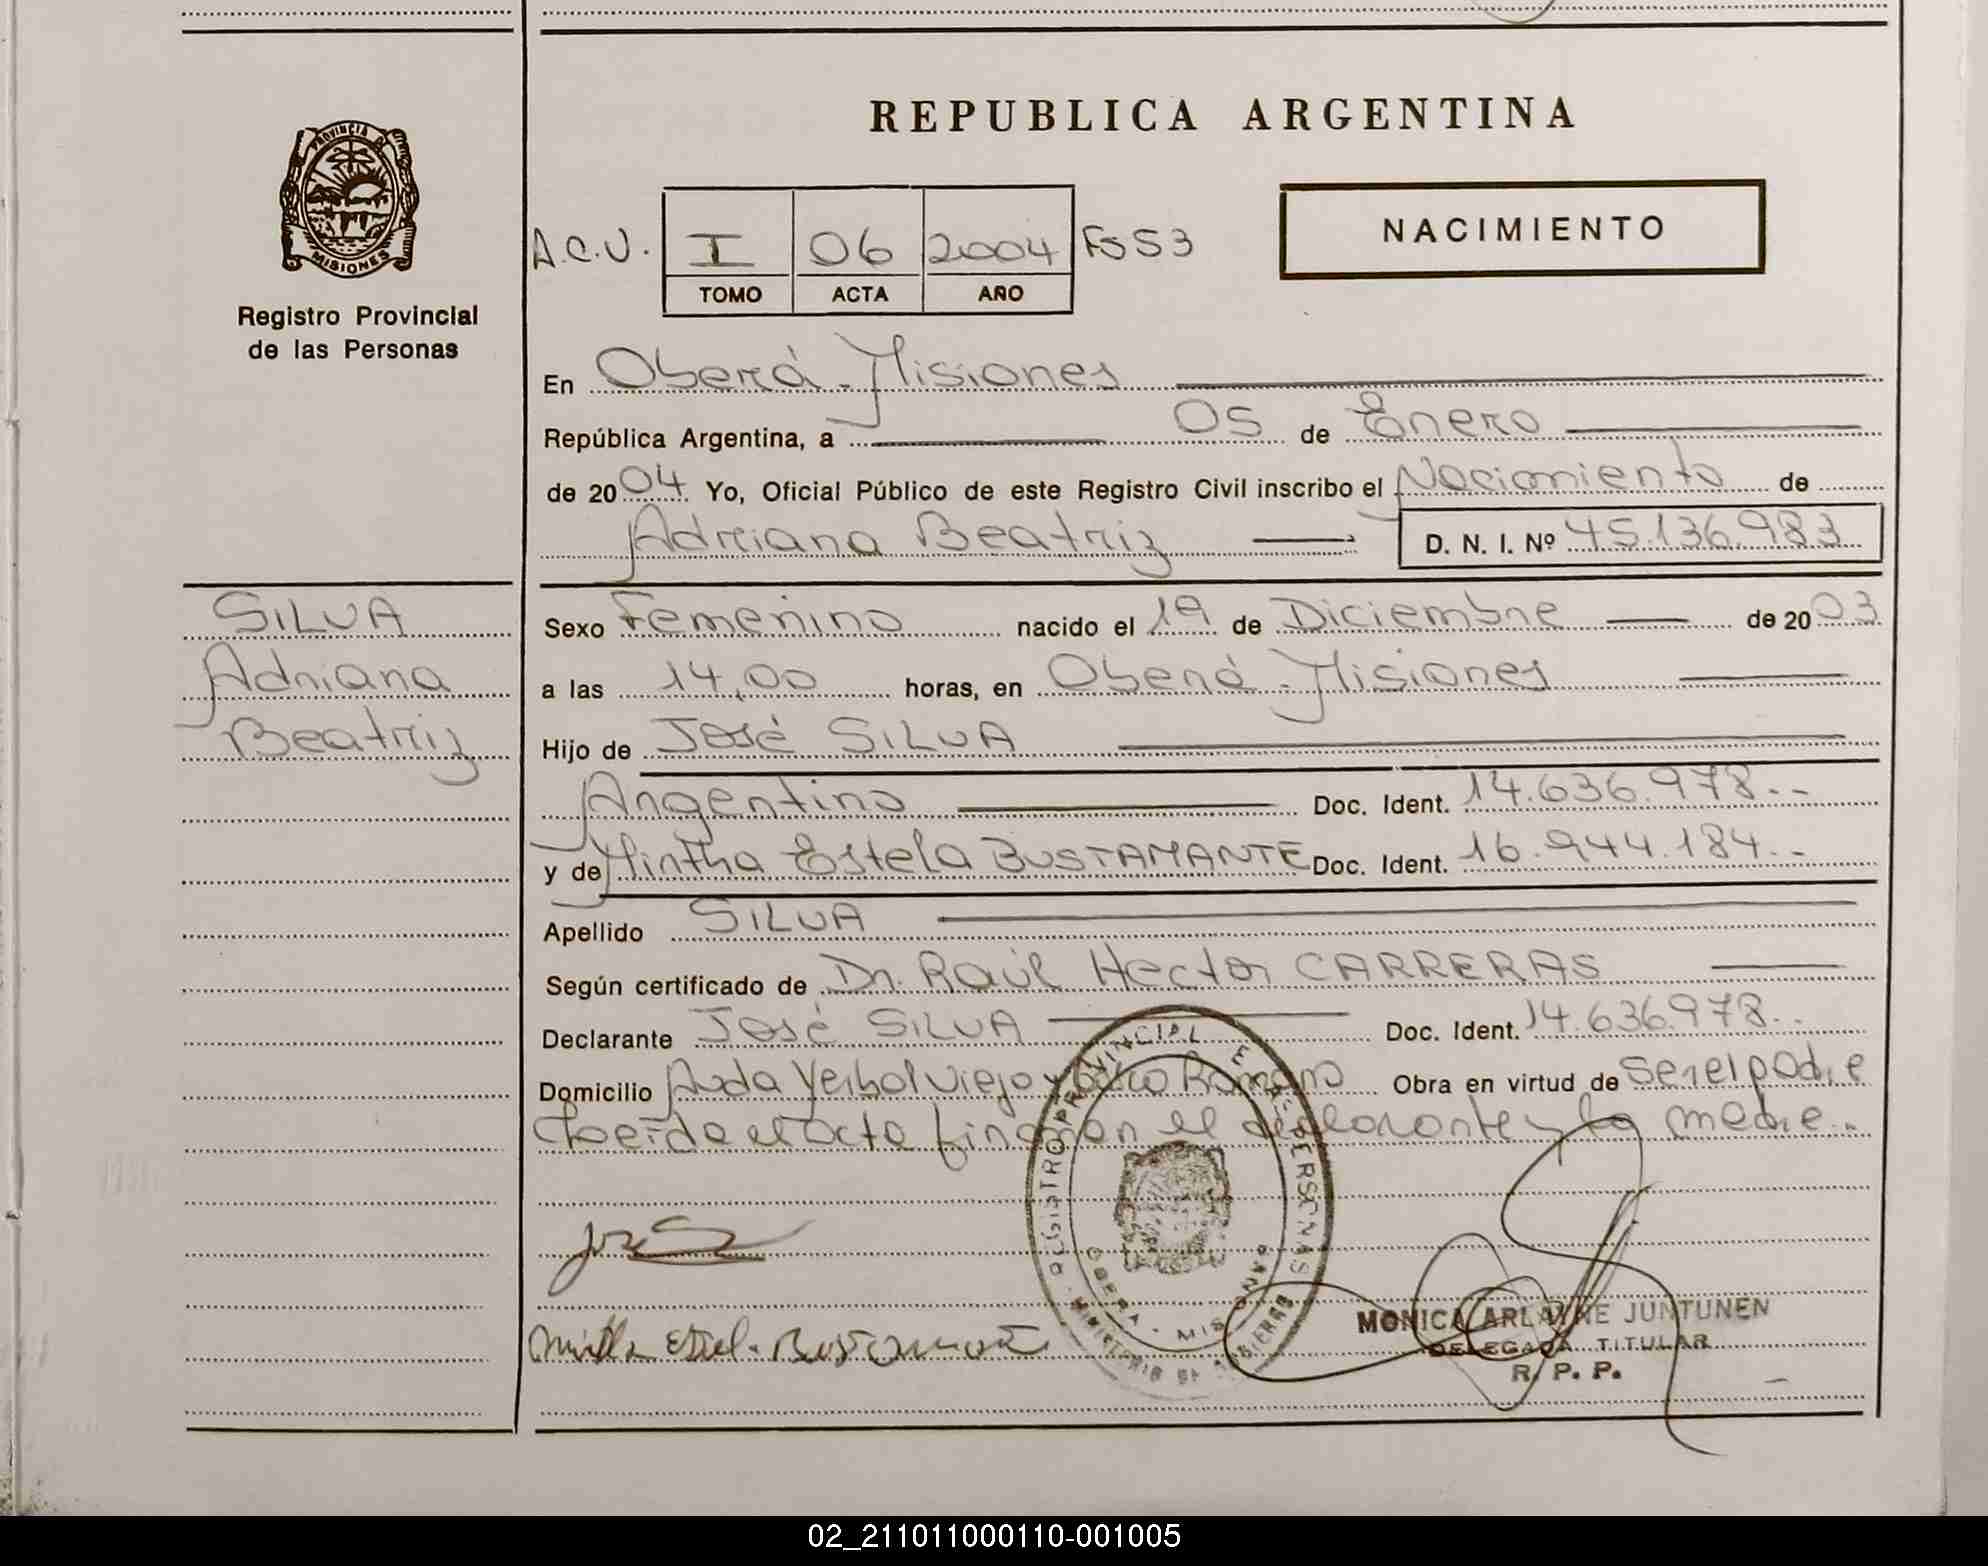 PROVINCIA DE
MISIONES
Registro Provincial
de las Personas
SILVA
Adriana
Beatriz
REPUBLICA ARGENTINA
A.C.V. I 06 2004 Fs 53
TOMO ACTA AÑO
NACIMIENTO
En Oberá - Misiones
República Argentina, a 05 de Enero
de 2004 Yo, Oficial Público de este Registro Civil inscribo el Nacimiento de
Adriana Beatriz D. N. I. Nº 45.136.983
Sexo Femenino nacido el 19 de Diciembre de 2003
a las 14,00 horas, en Oberá - Misiones
Hijo de José SILVA
Argentino Doc. Ident. 14.636.978.--
y de Mirtha Estela BUSTAMANTE Doc. Ident. 16.944.184.--
Apellido SILVA
Según certificado de Dr. Raúl Hector CARRERAS
Declarante José SILVA Doc. Ident. 14.636.978.-
Domicilio Avda Yerbal Viejo y Romano Obra en virtud de Ser el padre
Leída el acta firman el declarante y la madre.-
REGISTRO PROVINCIAL DE LAS PERSONAS
OBERA - MISIONES
MINISTERIO DE GOBIERNO
Mirtha Estel. Bustamante
MONICA ARLAINE JUNTUNEN
DELEGADA TITULAR
R. P. P.
02_211011000110-001005